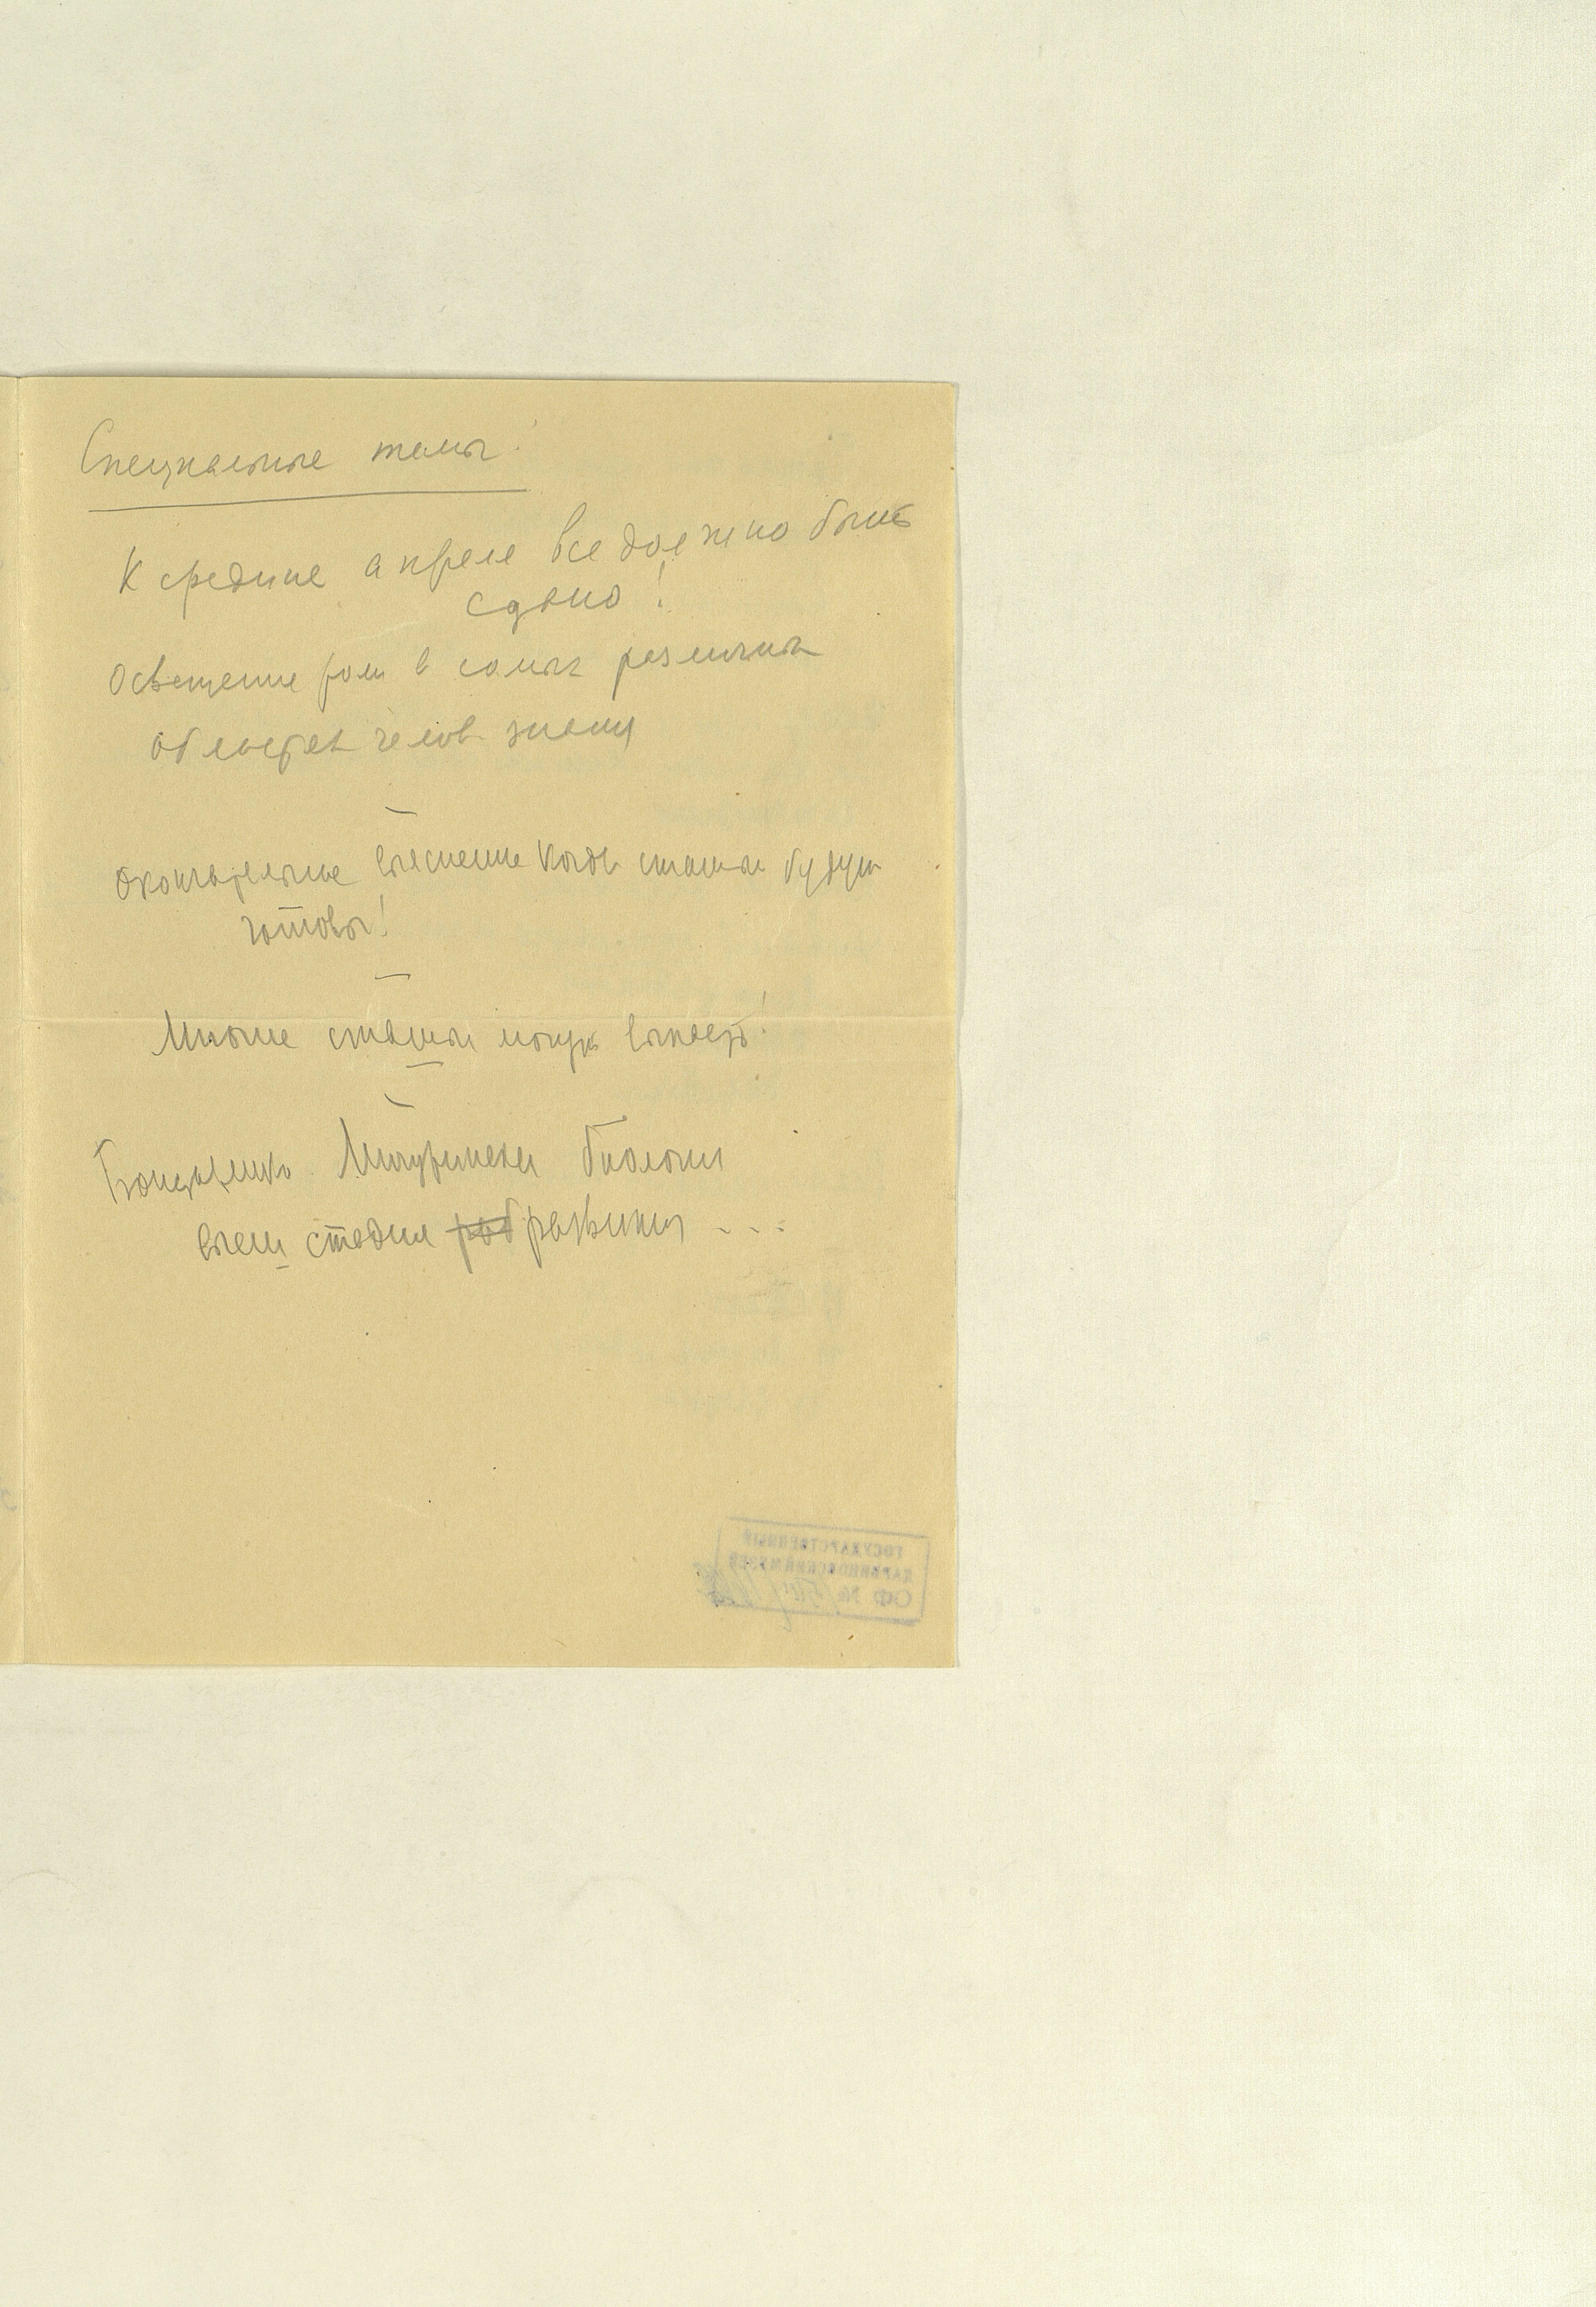 Специальные темы!
К средине апреля все должно быть
сдано!
Освещение роли в самых различных
областях челов знания
Окончательное выяснение когда статьи будут
готовы!
Многие статьи могут выпасть!
Мичуринская биология
высш стадия развития ...
ГОСУДАРСТВЕННЫЙ
ДАРВИНОВСКИЙ МУЗЕЙ
ОФ №